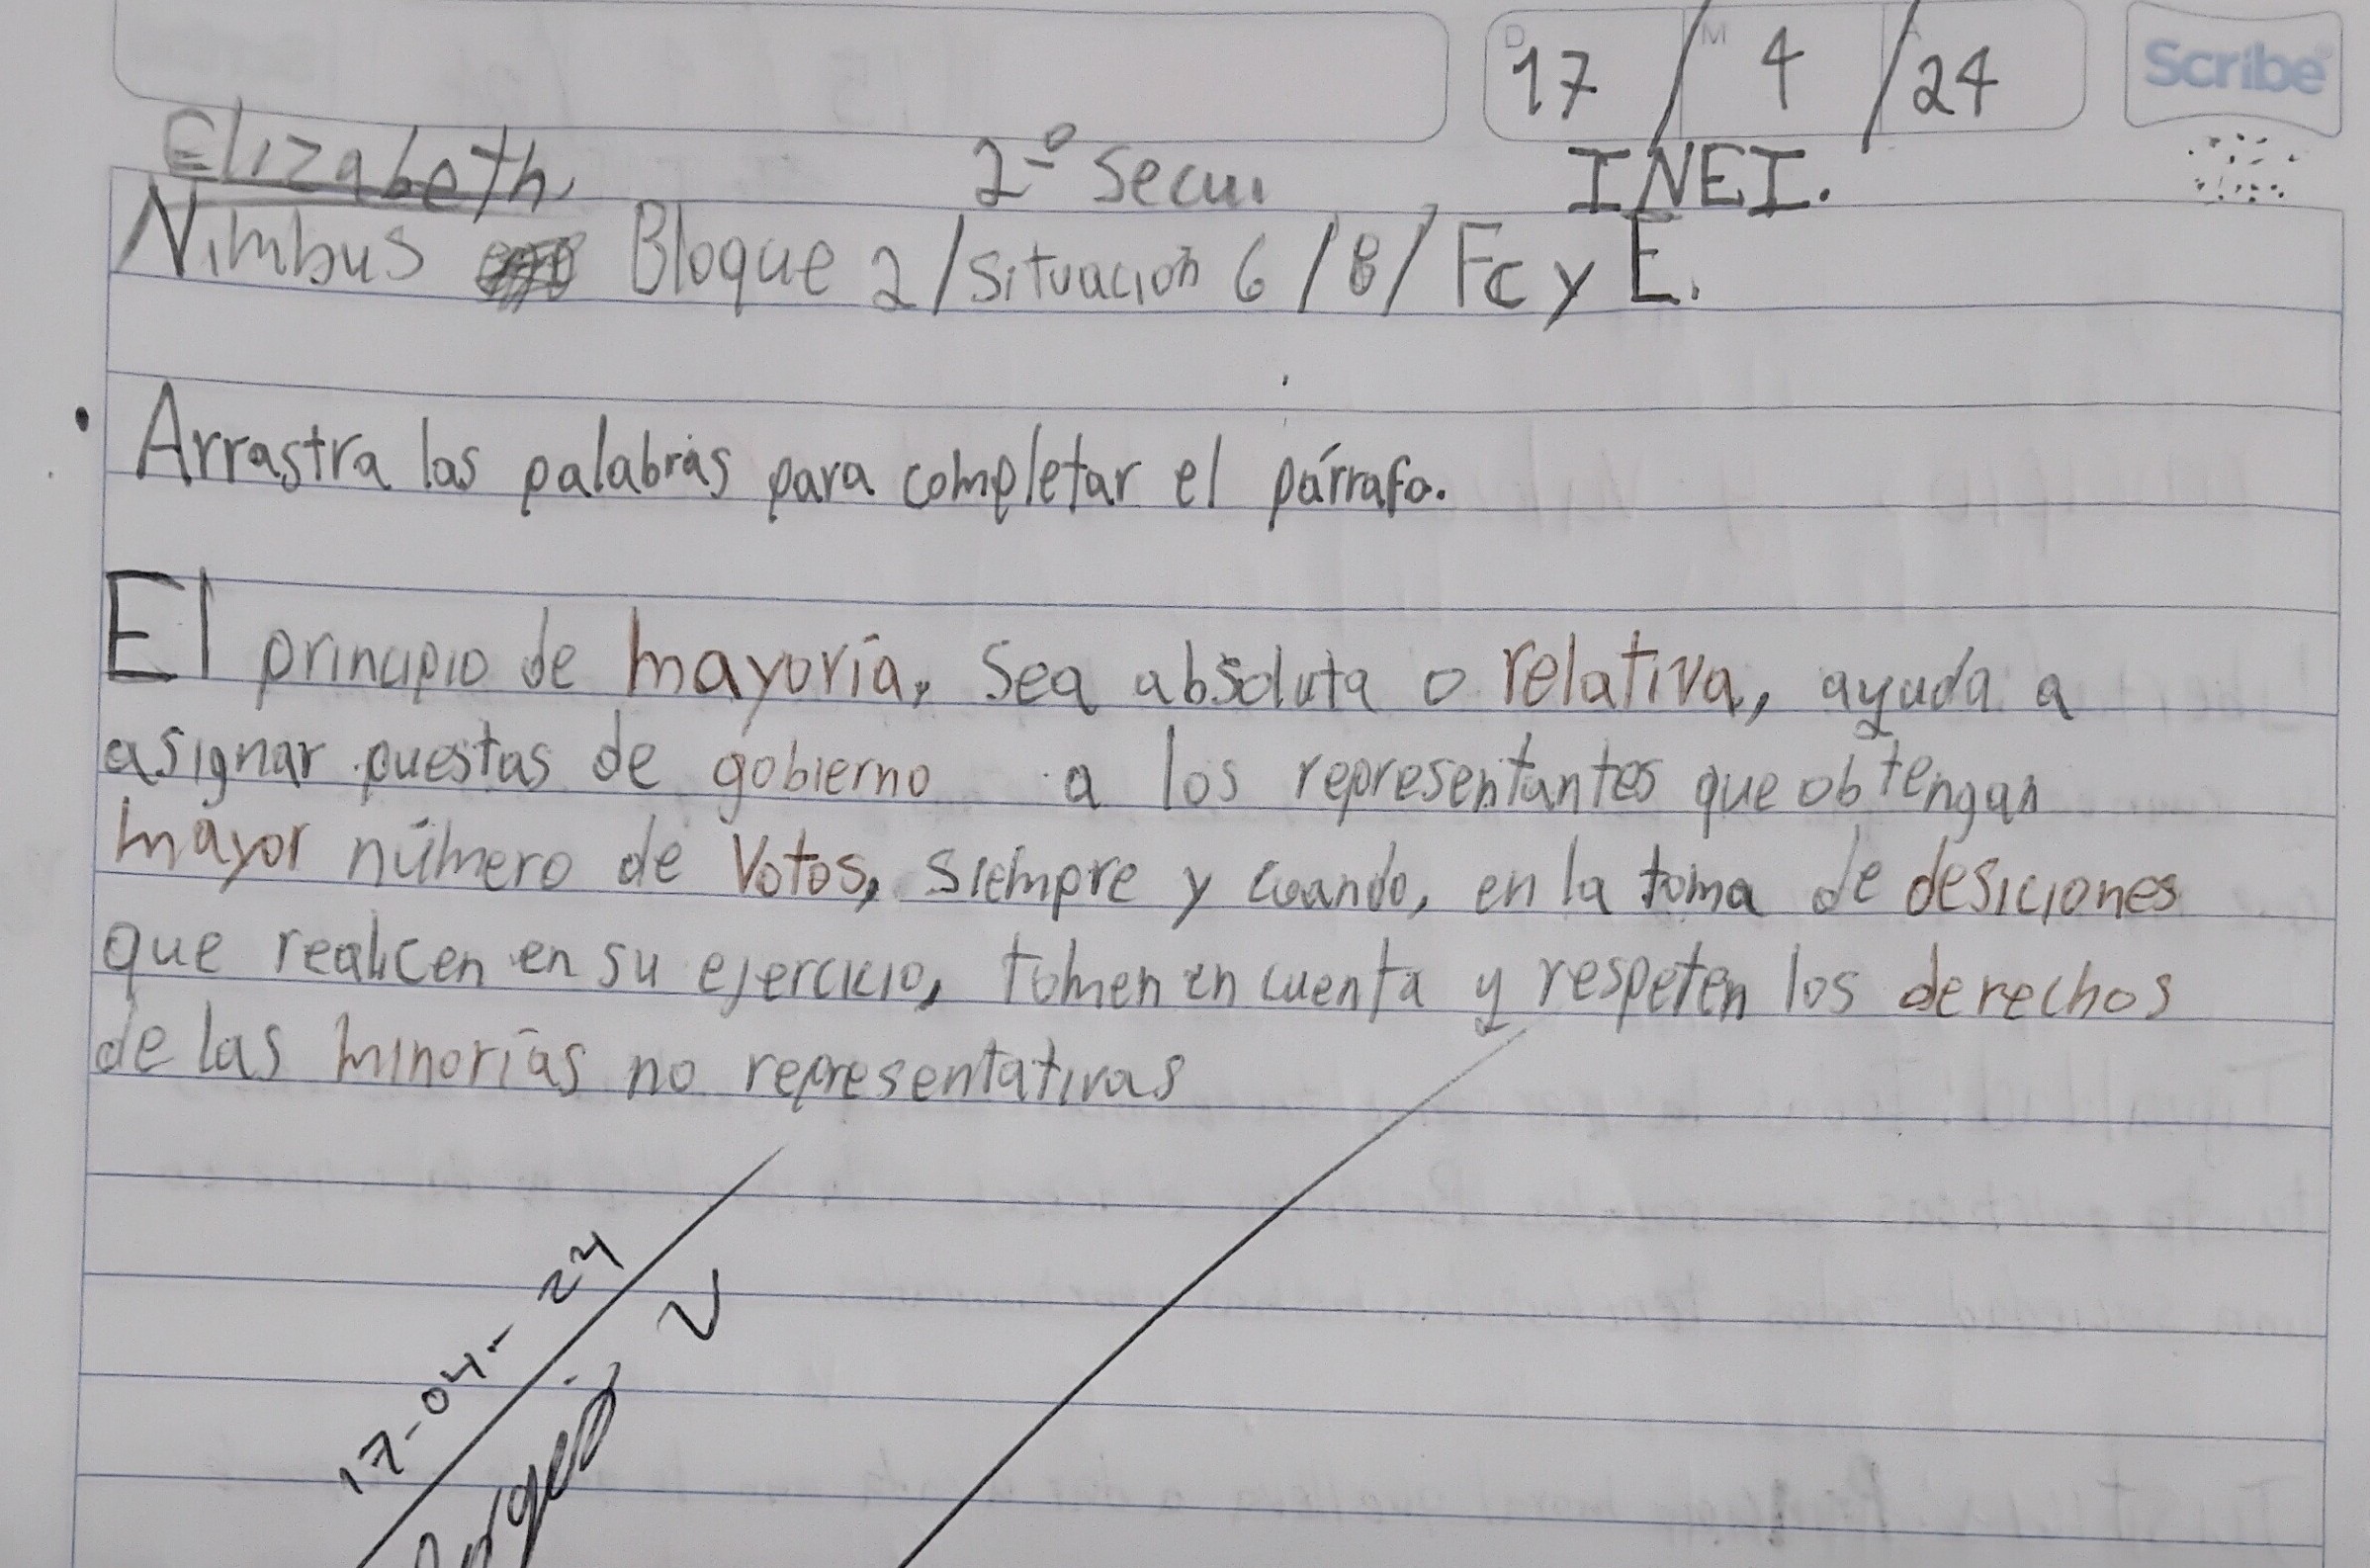 17 / 4 / 24
Scribe
Elizabeth 2º Secu. INEI.
Nimbus Bloque 2 / Situación 6 / 8 / Fc y E.
• Arrastra las palabras para completar el párrafo.
El principio de mayoría, Sea absoluta o relativa, ayuda a
asignar puestas de gobierno a los representantes que obtengan
mayor número de Votos, siempre y cuando, en la toma de desiciones
que realicen en su ejercicio, tomen en cuenta y respeten los derechos
de las minorías no representativas
17-04-24